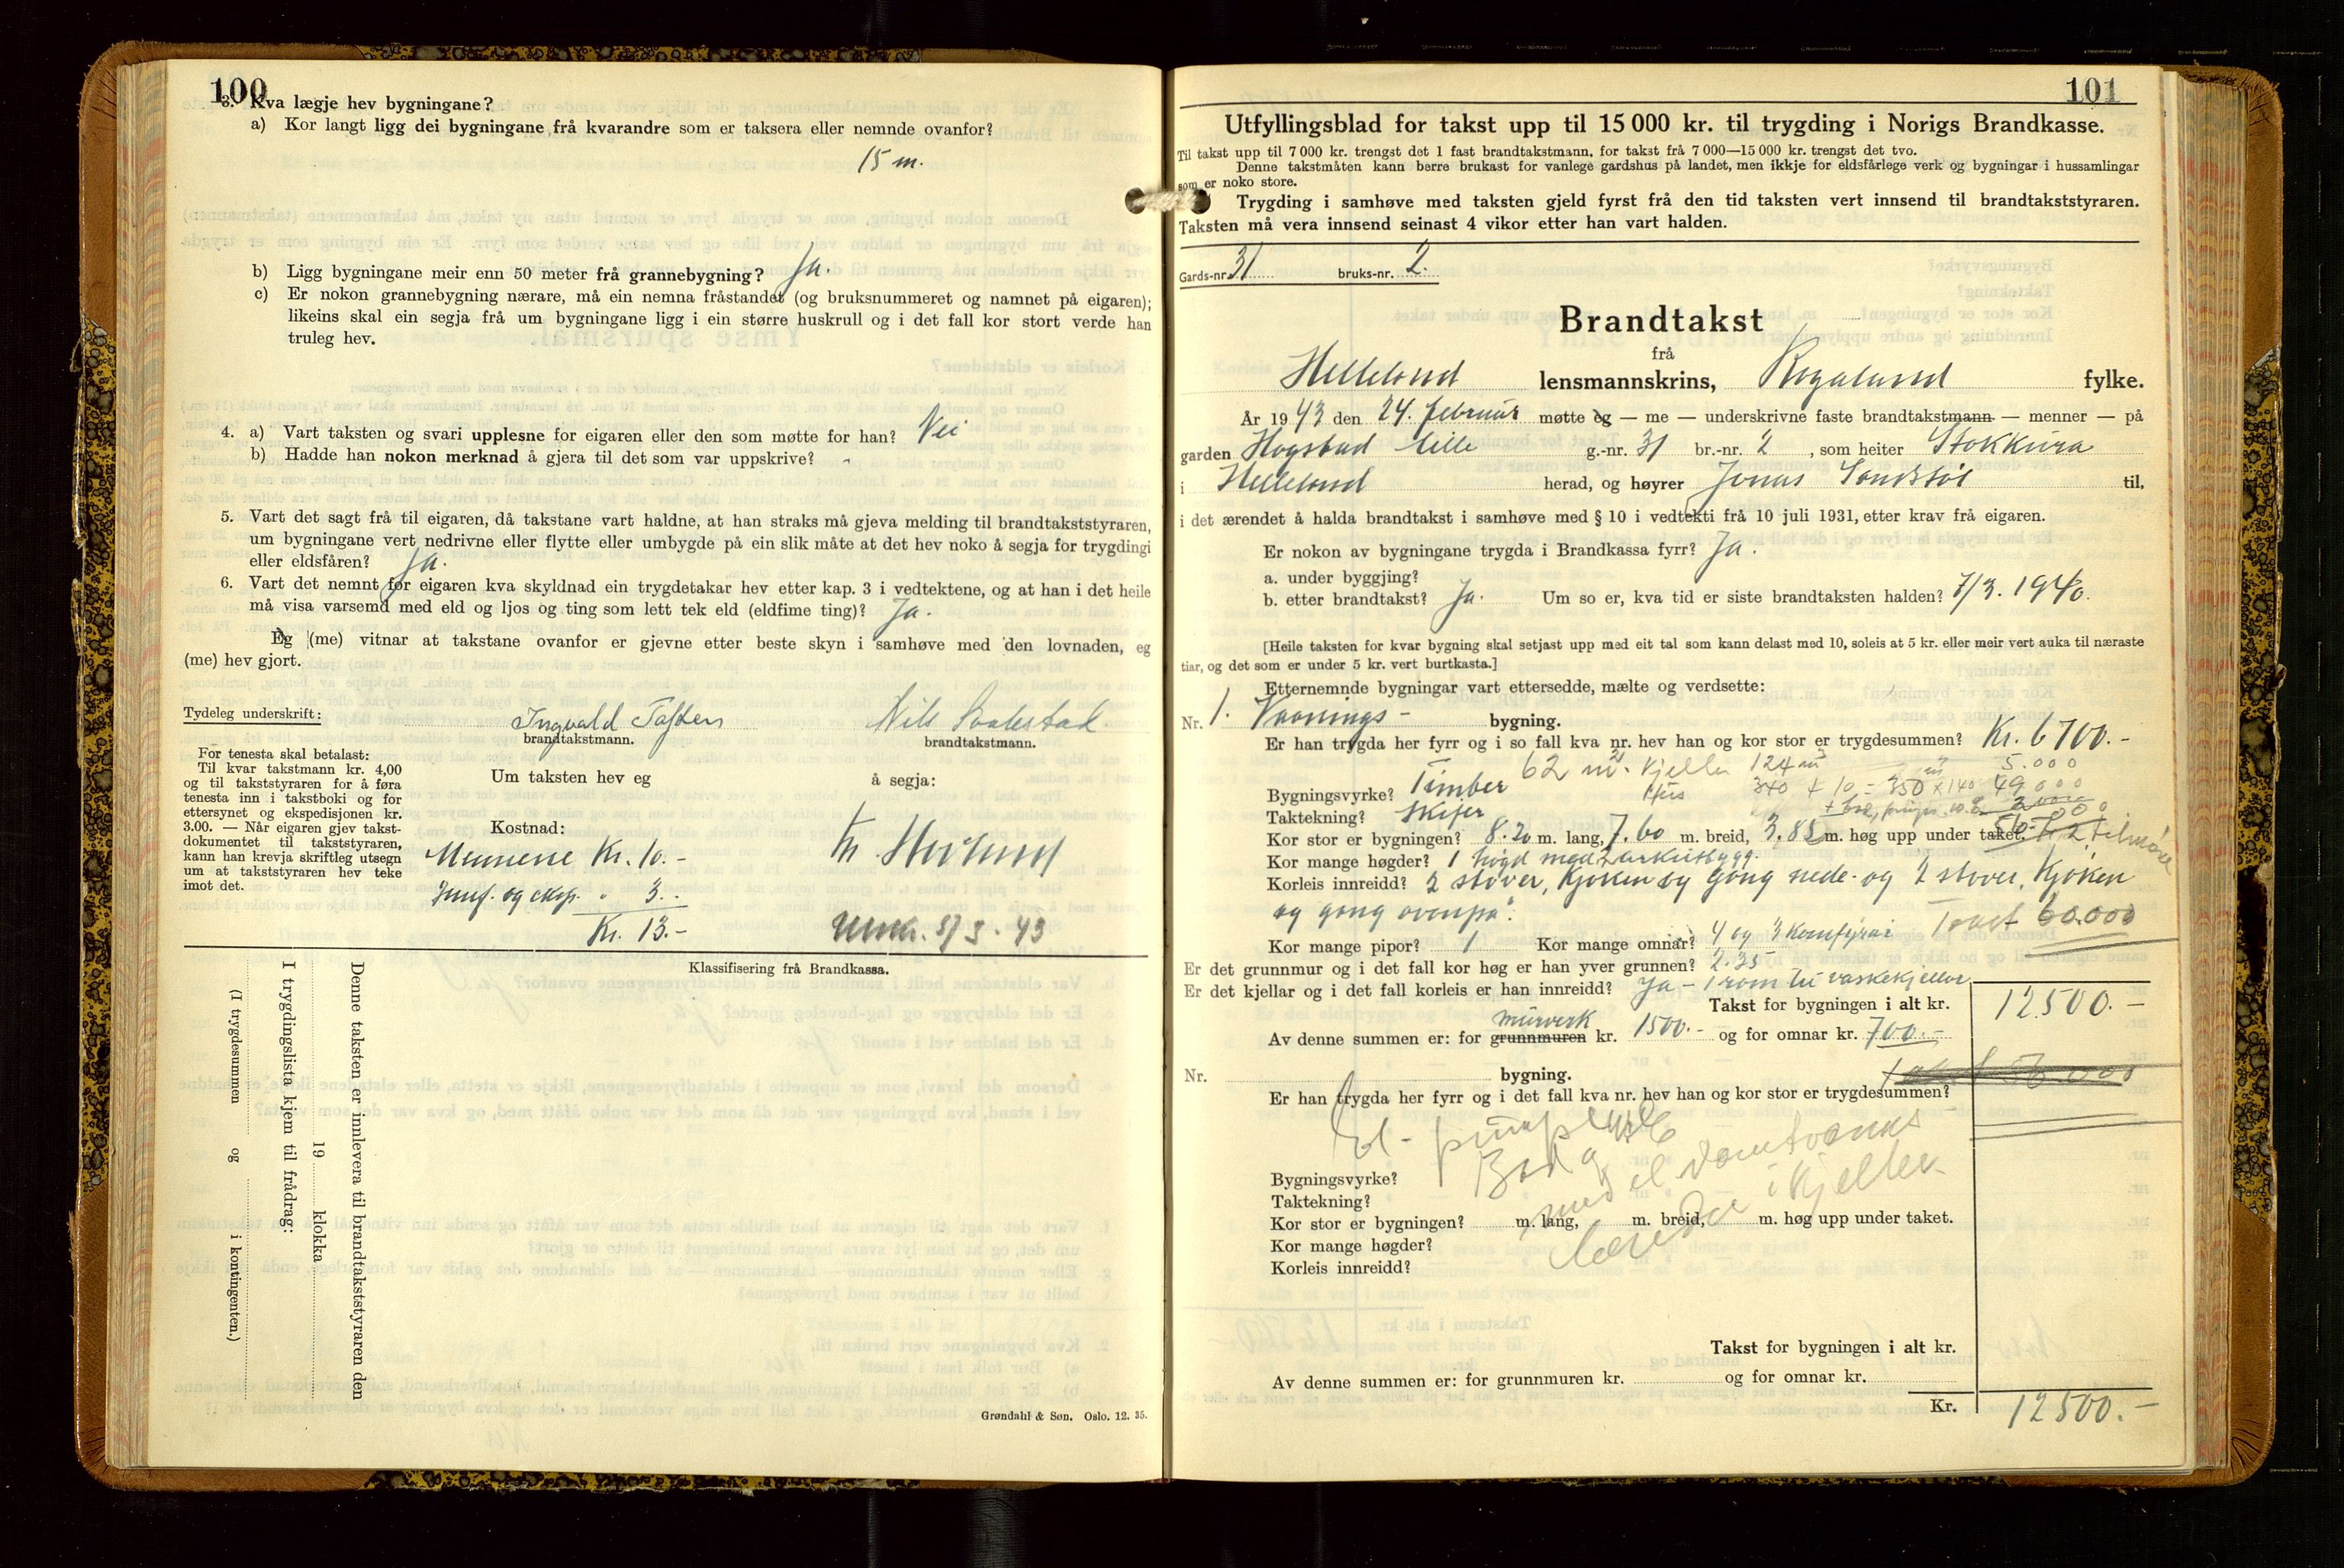 100
3. Kva lægje hev bygningane?
a) Kor langt ligg dei bygningane frå kvarandre som er taksera eller nemnde ovanfor?
15 m.
b) Ligg bygningane meir enn 50 meter frå grannebygning? Ja.
c) Er nokon grannebygning nærare, må ein nemna fråstandet (og bruksnummeret og namnet på eigaren);
likeins skal ein segja frå um bygningane ligg i ein større huskrull og i det fall kor stort verde han
truleg hev.
4. a) Vart taksten og svari upplesne for eigaren eller den som møtte for han? Nei
b) Hadde han nokon merknad å gjera til det som var uppskrive? -
5. Vart det sagt frå til eigaren, då takstane vart haldne, at han straks må gjeva melding til brandtakststyraren,
um bygningane vert nedrivne eller flytte eller umbygde på ein slik måte at det hev noko å segja for trygdingi
eller eldsfåren? Ja.
6. Vart det nemnt for eigaren kva skyldnad ein trygdetakar hev etter kap. 3 i vedtektene, og at han i det heile
må visa varsemd med eld og ljos og ting som lett tek eld (eldfime ting)? Ja.
Eg (me) vitnar at takstane ovanfor er gjevne etter beste skyn i samhøve med den lovnaden, eg
(me) hev gjort.
Tydeleg underskrift: Ingvald Nils
brandtakstmann. brandtakstmann.
For tenesta skal betalast:
Til kvar takstmann kr. 4,00
og til takststyraren for å føra
tenesta inn i takstboki og for
ettersynet og ekspedisjonen kr.
3.00. — Når eigaren gjev takst-
dokumentet til takststyraren,
kann han krevja skriftleg utsegn
um at takststyraren hev teke
imot det.
Um taksten hev eg å segja:
Kostnad:
Mennene Kr. 10.-
og eksp. " 3.-
Kr. 13.-
3 - 43
Klassifisering frå Brandkassa.
Denne taksten er innlevera til brandtakststyraren den
19 klokka
I trygdingslista kjem til frådrag:
(I trygdesummen og i kontingenten.)
Grøndahl & Søn. Oslo. 12. 35.
101
Utfyllingsblad for takst upp til 15 000 kr. til trygding i Norigs Brandkasse.
Til takst upp til 7 000 kr. trengst det 1 fast brandtakstmann, for takst frå 7 000—15 000 kr. trengst det tvo.
Denne takstmåten kann berre brukast for vanlege gardshus på landet, men ikkje for eldsfårlege verk og bygningar i hussamlingar
som er noko store.
Trygding i samhøve med taksten gjeld fyrst frå den tid taksten vert innsend til brandtakststyraren.
Taksten må vera innsend seinast 4 vikor etter han vart halden.
Gards-nr. 31 bruks-nr. 2.
Brandtakst
frå
Helleland lensmannskrins, Rogaland fylke.
År 1943 den 24. februar møtte eg — me — underskrivne faste brandtakstmann — menner — på
garden Høgstad lille g.-nr. 31 br.-nr. 2, som heiter Stokkura
i Helleland herad, og høyrer Jonas til,
i det ærendet å halda brandtakst i samhøve med § 10 i vedtekti frå 10 juli 1931, etter krav frå eigaren.
Er nokon av bygningane trygda i Brandkassa fyrr? Ja.
a. under byggjing?
b. etter brandtakst? Ja. Um so er, kva tid er siste brandtaksten halden? 7/3. 1940.
[Heile taksten for kvar bygning skal setjast upp med eit tal som kann delast med 10, soleis at 5 kr. eller meir vert auka til næraste
tiar, og det som er under 5 kr. vert burtkasta.]
Etternemnde bygningar vart ettersedde, mælte og verdsette:
Nr. 1. Vaanings- bygning.
Er han trygda her fyrr og i so fall kva nr. hev han og kor stor er trygdesummen? Kr. 6700.-
62 m². Kjeller 124 m² 5.000
Bygningsvyrke? Timber 340 + 10 = 350 x 140 49000
Taktekning? Skifer
Kor stor er bygningen? 8.20 m. lang, 7.60 m. breid, 3,85 m. høg upp under taket.
Kor mange høgder? 1 høgd med arkutbygg.
Korleis innreidd? 2 stover, Kjøken og gong nede- og 2 stover, Kjøken
og gong ovenpå.
Kor mange pipor? 1 Kor mange omnar? 4 og 3 Komfyrar Takst 60.000
Er det grunnmur og i det fall kor høg er han yver grunnen? 2.35
Er det kjellar og i det fall korleis er han innreidd? Ja - 1 rom til vaskekjellar
Takst for bygningen i alt kr. 12500.-
Av denne summen er: for grunnmuren murverk kr. 1500.- og for omnar kr. 700.-
Nr. bygning.
Er han trygda her fyrr og i det fall kva nr. hev han og kor stor er trygdesummen?
El-
Bad og
med el. varmtvanns
i kjeller
Bygningsvyrke?
Taktekning?
Kor stor er bygningen? m. lang, m. breid, m. høg upp under taket.
Kor mange høgder?
Korleis innreidd?
Takst for bygningen i alt kr.
Av denne summen er: for grunnmuren kr. og for omnar kr.
Kr. 12500.-